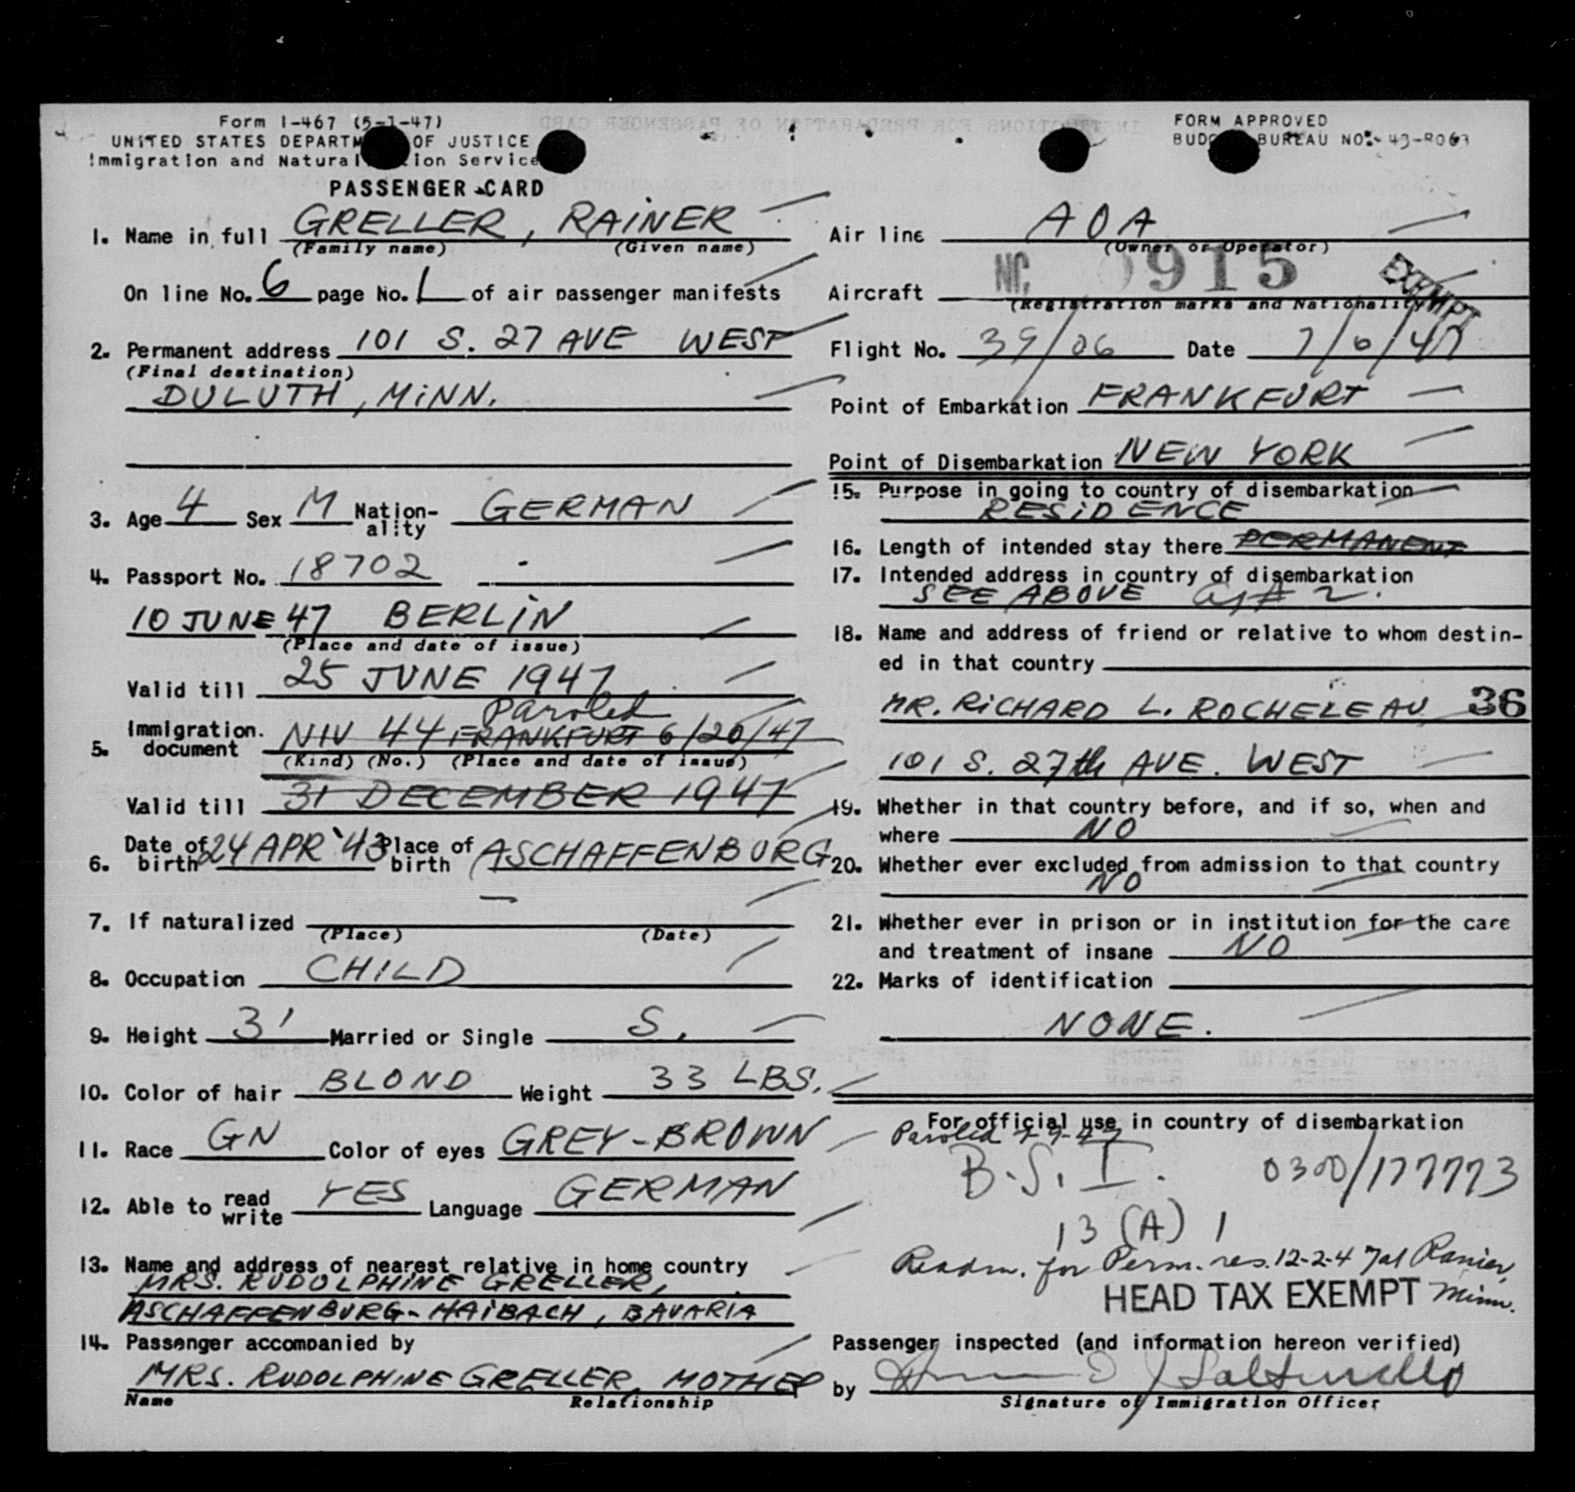 Form I-467 (5-1-47)
UNITED STATES DEPARTM OF JUSTICE
Immigration and Natural ion Service
PASSENGER CARD
1. Name in full GRELLER, RAINER
(Family name) (Given name)
On line No. 6 page No. 1 of air passenger manifests
2. Permanent address 101 S. 27 AVE WEST
(Final destination)
DULUTH, MINN.
3. Age 4 Sex M Nation-ality GERMAN
4. Passport No. 18702 -
10 JUNE 47 BERLIN
(Place and date of issue)
Valid till 25 JUNE 1947
Paroled
5. Immigration document NIV 44 FRANKFURT 6/20/47
(Kind) (No.) (Place and date of issue)
Valid till 31 DECEMBER 1947
6. Date of birth 24 APR '43 Place of birth ASCHAFFENBURG
7. If naturalized —
(Place) (Date)
8. Occupation CHILD
9. Height 3' Married or Single S.
10. Color of hair BLOND Weight 33 LBS.
11. Race GN Color of eyes GREY-BROWN
12. Able to read write YES Language GERMAN
13. Name and address of nearest relative in home country
MRS. RUDOLPHINE GRELLER,
ASCHAFFENBURG-HAIBACH, BAVARIA
14. Passenger accompanied by
MRS. RUDOLPHINE GRELLER, MOTHER
Name Relationship
FORM APPROVED
BUDG BUREAU NO. 43-R063
Air line AOA
(Owner or Operator)
Aircraft NC 0915 EXEMPT
(Registration marks and Nationality)
Flight No. 39/06 Date 7/6/47
Point of Embarkation FRANKFURT
Point of Disembarkation NEW YORK
15. Purpose in going to country of disembarkation
RESIDENCE
16. Length of intended stay there PERMANENT
17. Intended address in country of disembarkation
SEE ABOVE 2.
18. Name and address of friend or relative to whom destin-
ed in that country
MR. RICHARD L. ROCHELEAU 36
101 S. 27th AVE. WEST
19. Whether in that country before, and if so, when and
where NO
20. Whether ever excluded from admission to that country
NO
21. Whether ever in prison or in institution for the care
and treatment of insane NO
22. Marks of identification
NONE.
For official use in country of disembarkation
Paroled 7-7-47
B.S.I. 0300/177773
13 (A) 1
Readm. for Perm. res. 12-2-47 at Ranier,
HEAD TAX EXEMPT Minn.
Passenger inspected (and information hereon verified)
by
Signature of Immigration Officer